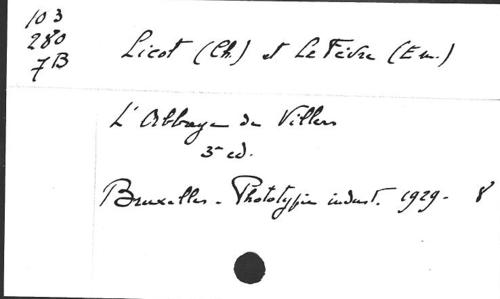 103
280
7B
Licot (Ch.) et Le Fèvre (Em.)
L'Abbaye de Villers
3e ed.
Bruxelles - Phototypie indust. 1929 - 8